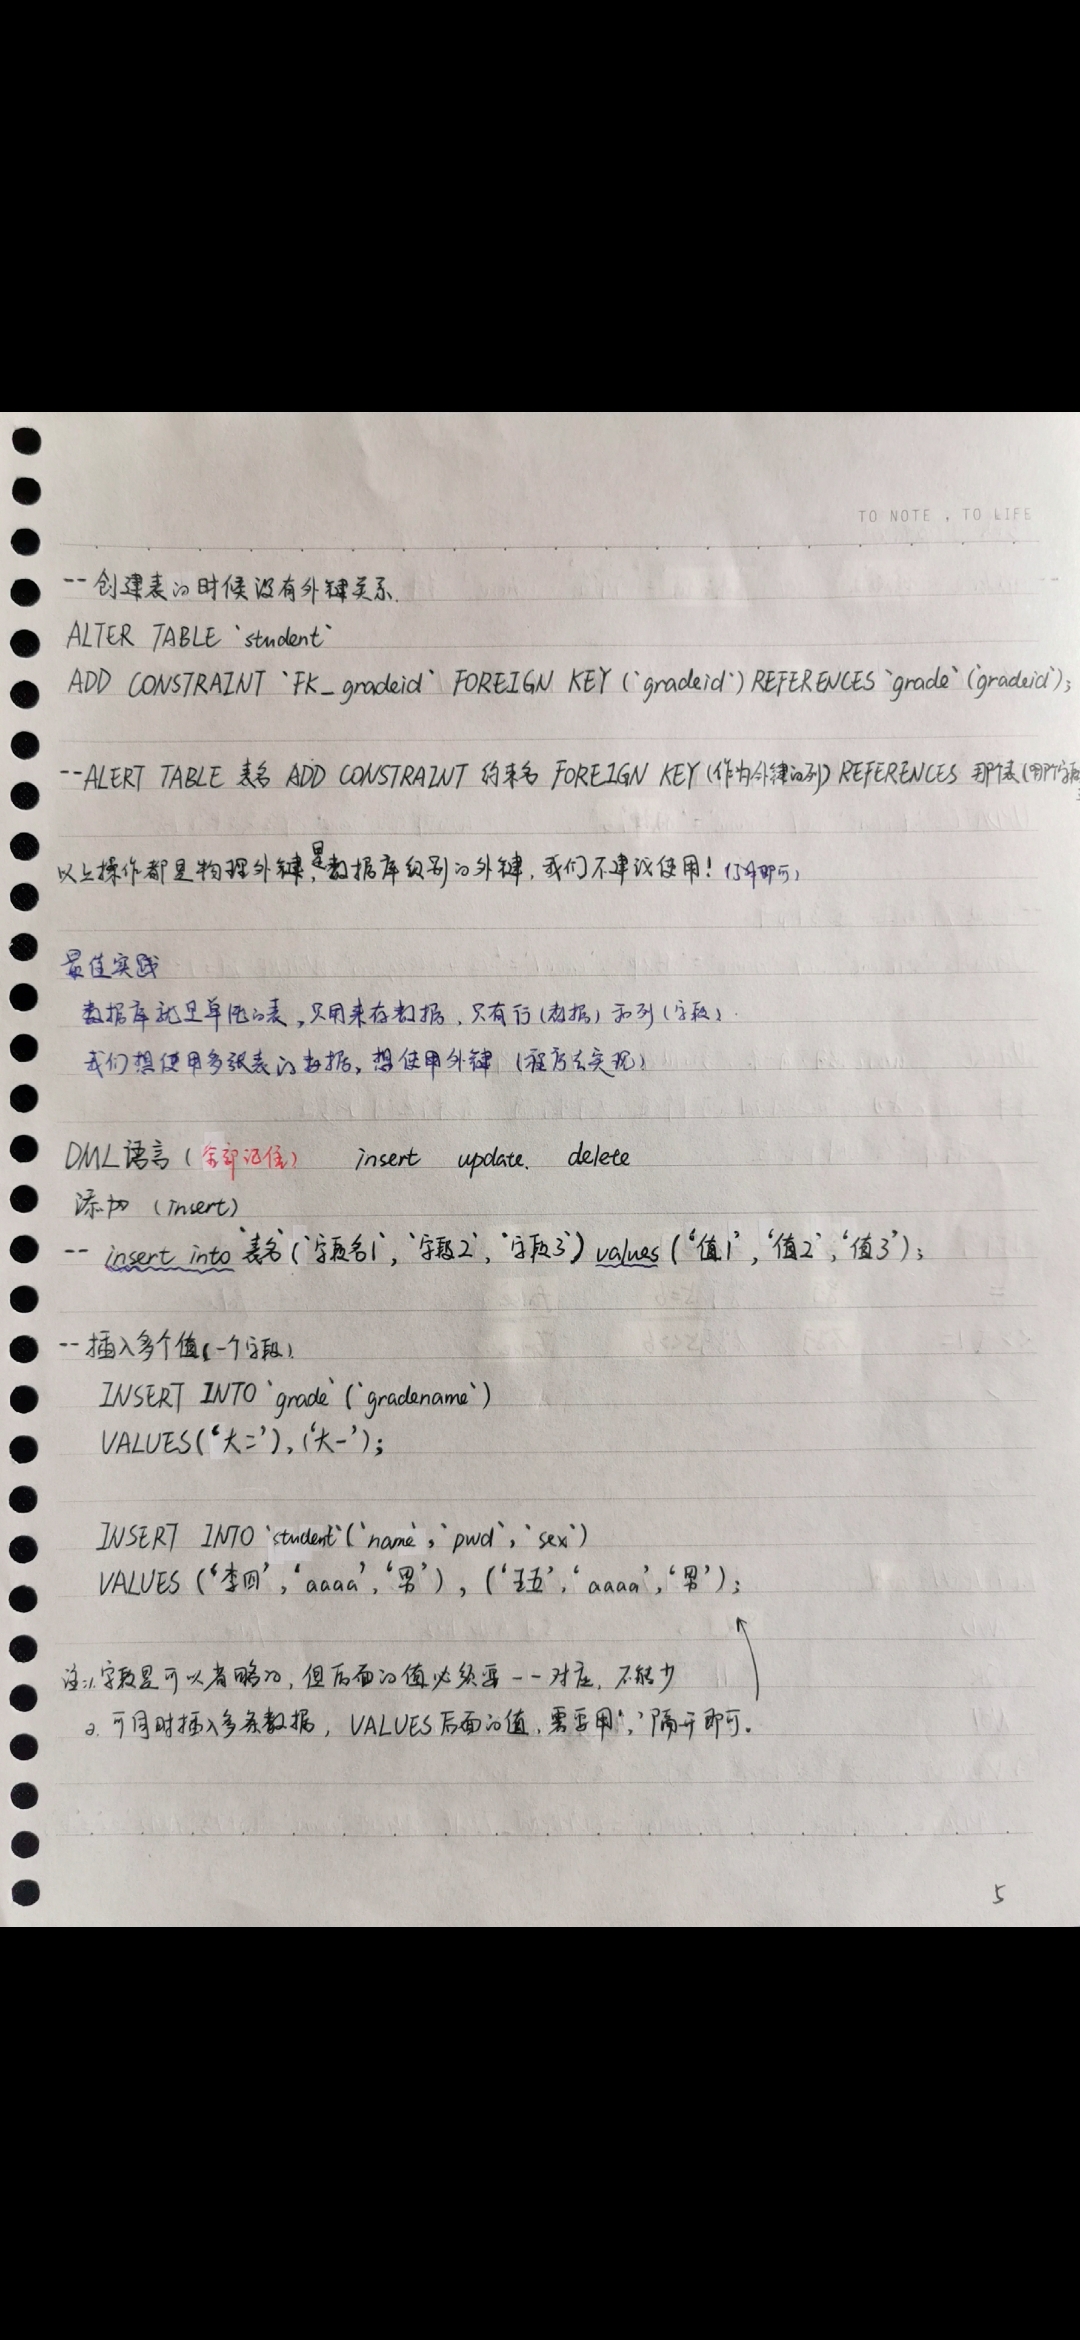 TO NOTE , TO LIFE
-- 创建表的时候没有外键关系.
ALTER TABLE `student`
ADD CONSTRAINT `FK_gradeid` FOREIGN KEY (`gradeid`) REFERENCES `grade` (`gradeid`);
-- ALERT TABLE 表名 ADD CONSTRAINT 约束名 FOREIGN KEY (作为外键的列) REFERENCES 那个表(哪个字段
以上操作都是物理外键,是数据库级别的外键,我们不建议使用! (了解即可)
最佳实践
数据库就是单纯的表,只用来存数据,只有行(数据)和列(字段).
我们想使用多张表的数据,想使用外键 (程序去实现)
DML语言 (全部记住) insert update. delete
添加 (insert)
-- insert into `表名` (`字段名1`, `字段2`, `字段3`) values (‘值1’, ‘值2’, ‘值3’);
-- 插入多个值(一个字段)
INSERT INTO `grade` (`gradename`)
VALUES(‘大二’), (‘大一’);
INSERT INTO `student` (`name`, `pwd`, `sex`)
VALUES (‘李四’, ‘aaaa’, ‘男’), (‘王五’, ‘aaaa’, ‘男’);
注:1. 字段是可以省略的,但后面的值必须要一一对应,不能少
2. 可同时插入多条数据, VALUES 后面的值,需要用‘,’隔开即可。
5